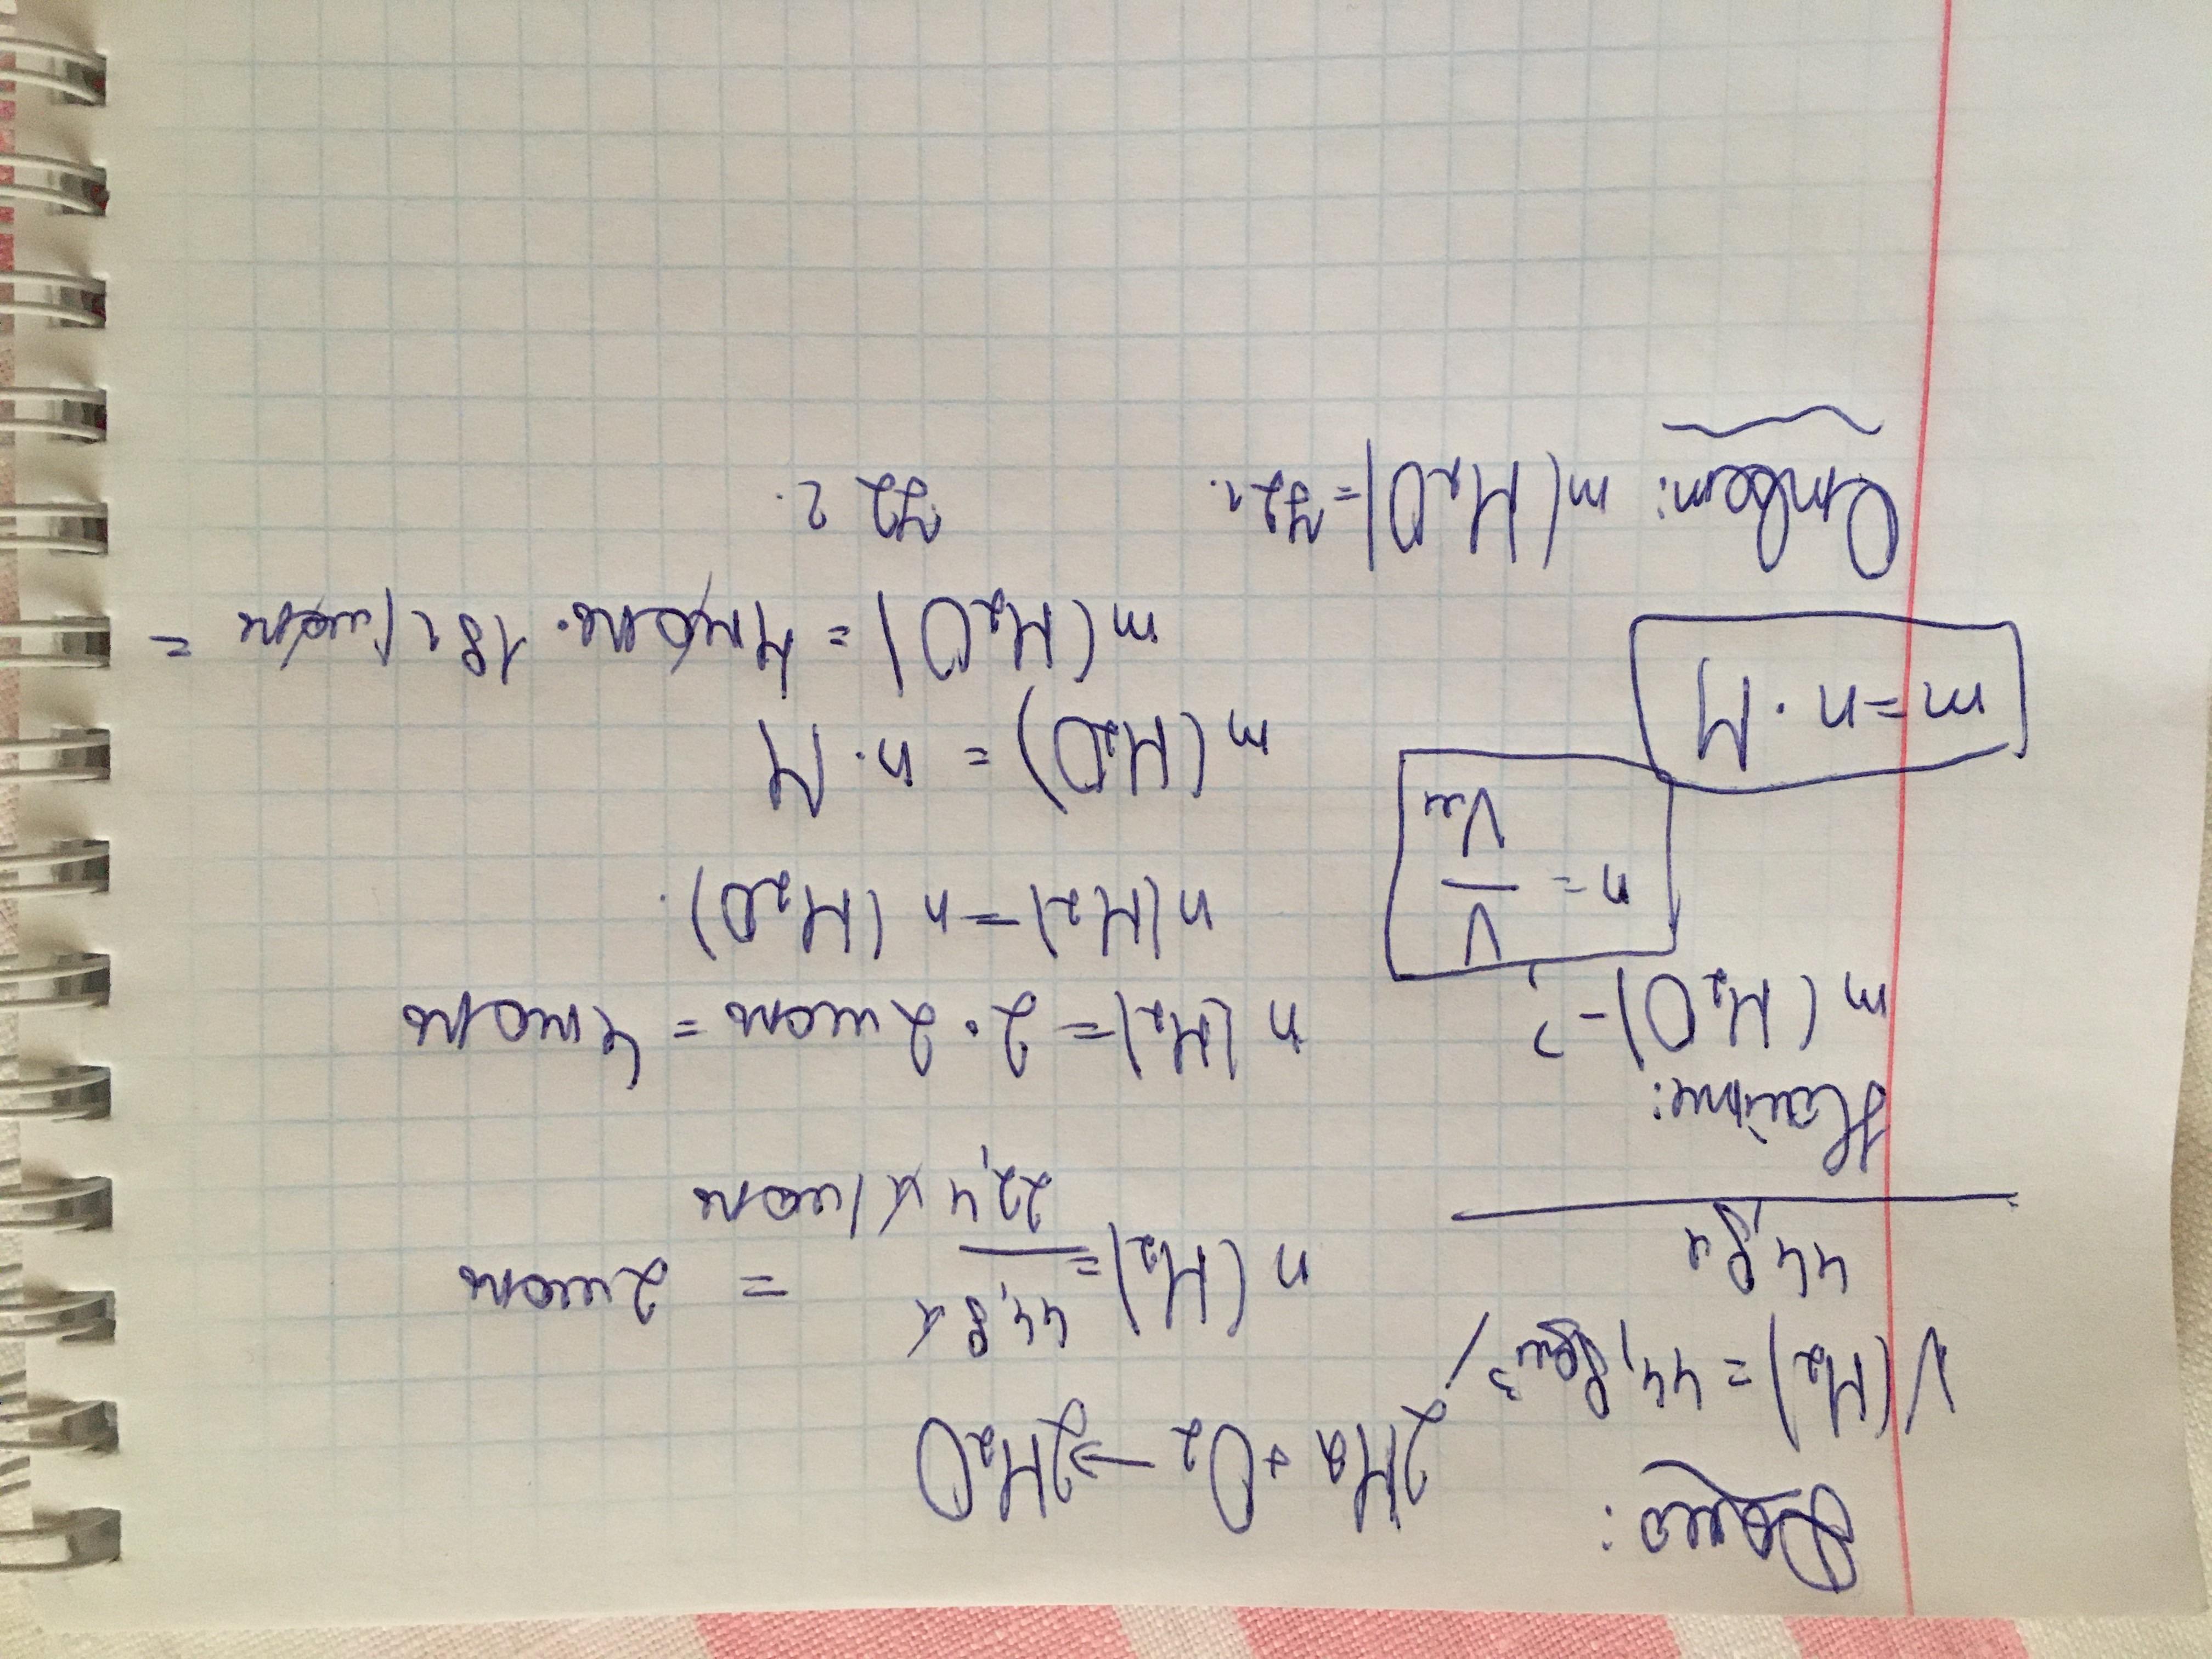 Дано:
V(H₂)=44,8дм³/
44,8л
Найти:
m(H₂O)-?
n = V/Vм
m=n·M
2H₂+O₂→2H₂O
n(H₂)= 44,8л/22,4л/моль = 2моль
n(H₂)=2·2моль=4моль
n(H₂)=n(H₂O).
m(H₂O)=n·M
m(H₂O)=4моль·18г/моль=
72г.
Ответ: m(H₂O)=72г.